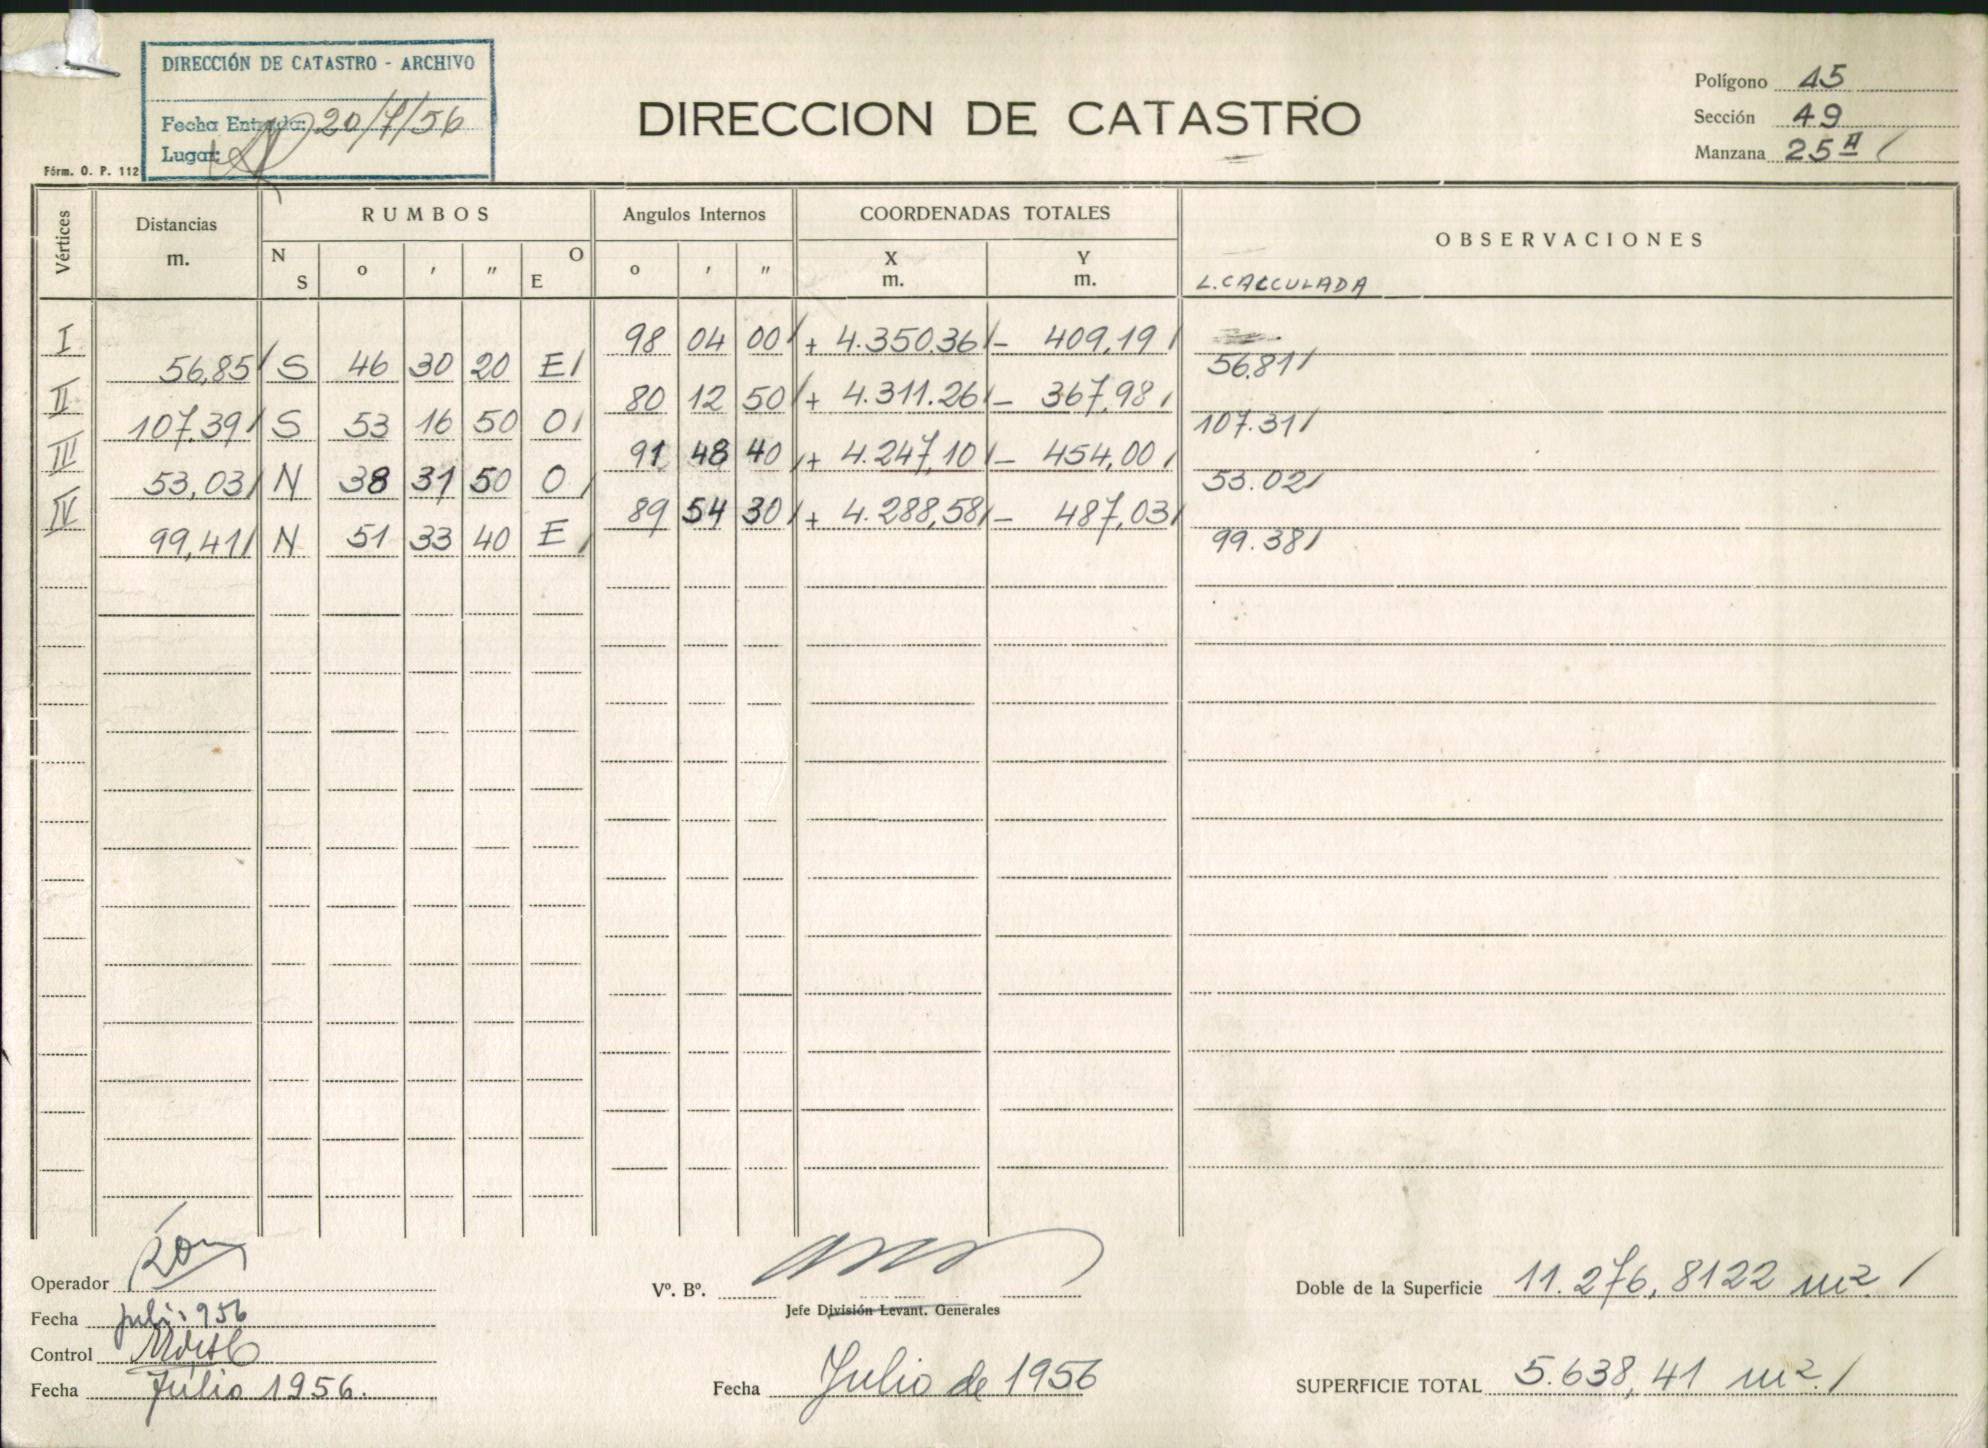 DIRECCIÓN DE CATASTRO - ARCHIVO
Fecha Entrada: 20/7/56
Lugar:
Fórm. O. P. 112
DIRECCION DE CATASTRO
Polígono 45
Sección 49
Manzana 25 A
Vértices Distancias m. RUMBOS Angulos Internos COORDENADAS TOTALES OBSERVACIONES
N S o ' " O E o ' " X m. Y m. L. CALCULADA
I 98 04 00 + 4.350.36 - 409,19
56,85 S 46 30 20 E 56.81
II 80 12 50 + 4.311.26 - 367,98
107.39 S 53 16 50 O 107.31
III 91 48 40 + 4.247,10 - 454,00
53,03 N 38 31 50 O 53.02
IV 89 54 30 + 4.288,58 - 487,03
99,41 N 51 33 40 E 99.38
Operador
Fecha
Control
Fecha Julio 1956.
Vº. Bº.
Jefe División Levant. Generales
Fecha Julio de 1956
Doble de la Superficie 11.276,8122 m2
SUPERFICIE TOTAL 5.638,41 m2